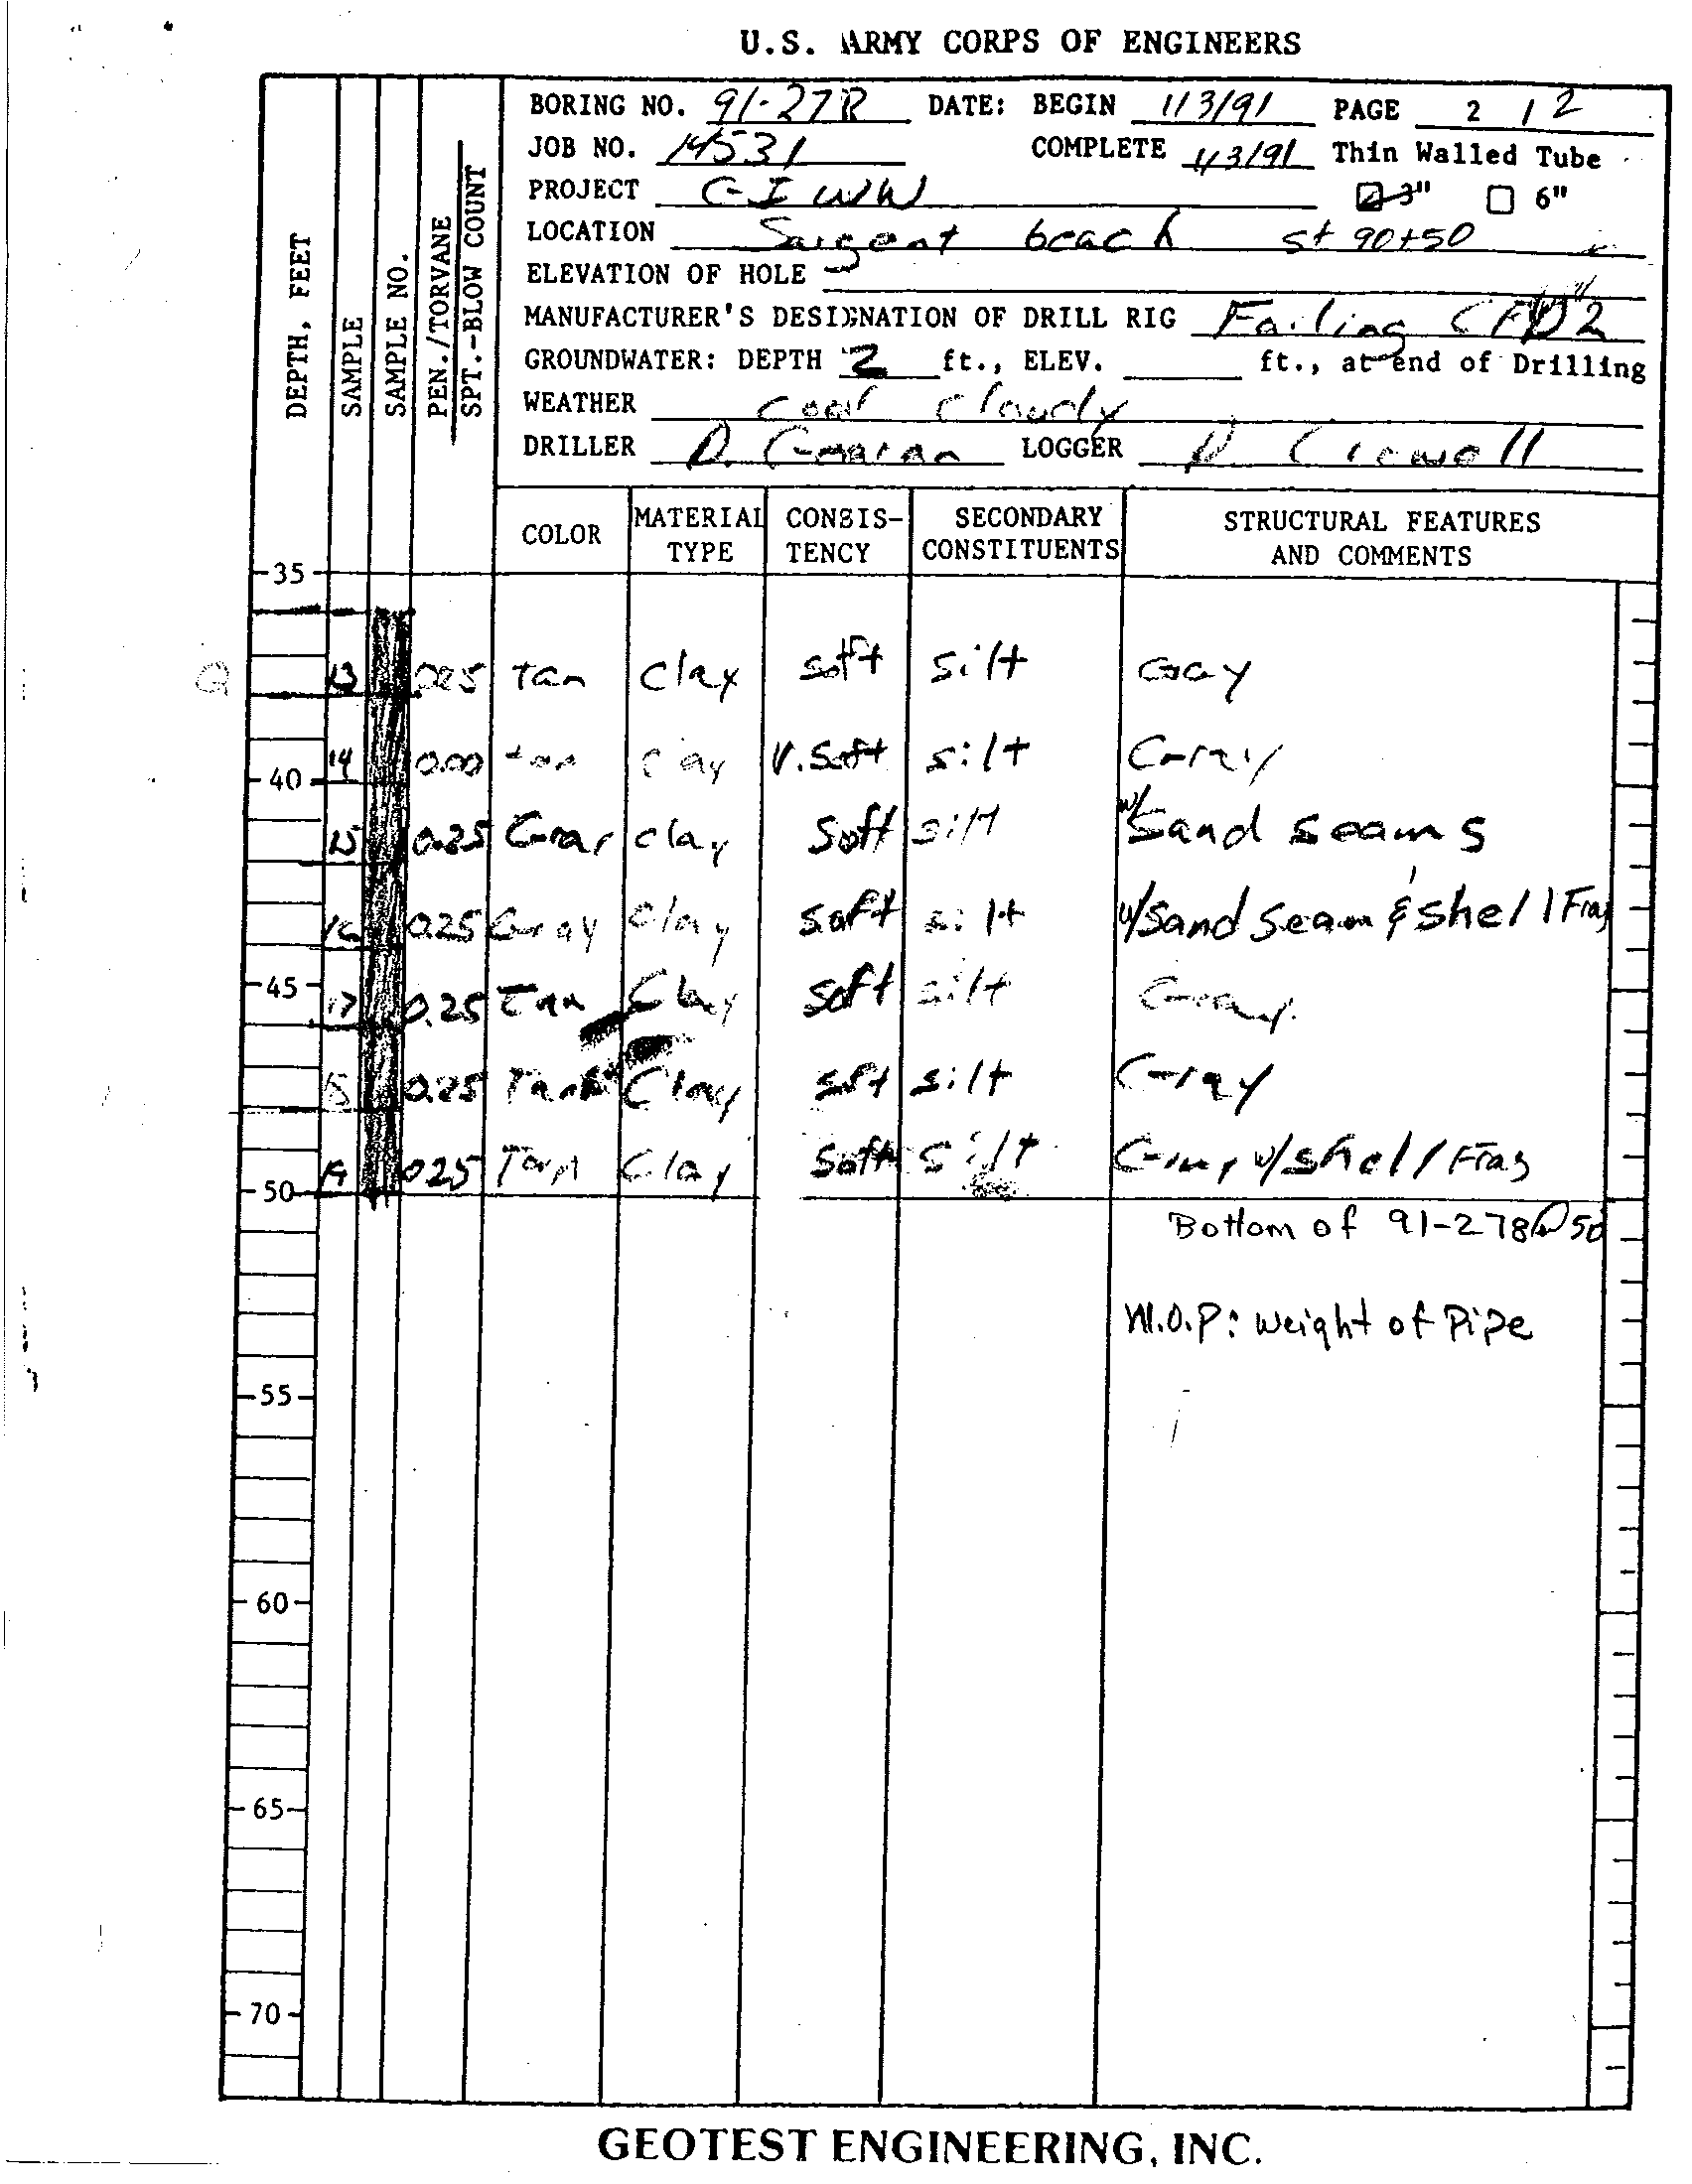 U.S. ARMY CORPS OF ENGINEERS
BORING NO. 91-278 DATE: BEGIN 1/3/91 PAGE 2 / 2
JOB NO. 14531 COMPLETE 1/3/91 Thin Walled Tube
PROJECT GIWW 3" 6"
LOCATION Sargent beach st 90+50
ELEVATION OF HOLE
MANUFACTURER'S DESIGNATION OF DRILL RIG Failing
GROUNDWATER: DEPTH 2 ft., ELEV. ft., at end of Drilling
WEATHER cool cloudy
DRILLER D. LOGGER D
DEPTH, FEET
SAMPLE
SAMPLE NO.
PEN./TORVANE
SPT.-BLOW COUNT
COLOR MATERIAL TYPE CONSIS-TENCY SECONDARY CONSTITUENTS STRUCTURAL FEATURES AND COMMENTS
35
Q 13 0.25 Tan Clay soft silt Gray
14 0.00 tan clay V.Soft silt Gray
40
15 0.25 Gray clay Soft silt w/Sand seams
16 0.25 Gray clay soft silt w/Sand Seam & shell Frag
45
17 0.25 Tan Clay soft silt Gray
18 0.25 Tan Clay soft silt Gray
19 0.25 Tan Clay Soft silt Gray w/shell Frag
50
Bottom of 91-278 @ 50
W.O.P: Weight of Pipe
55
60
65
70
GEOTEST ENGINEERING, INC.